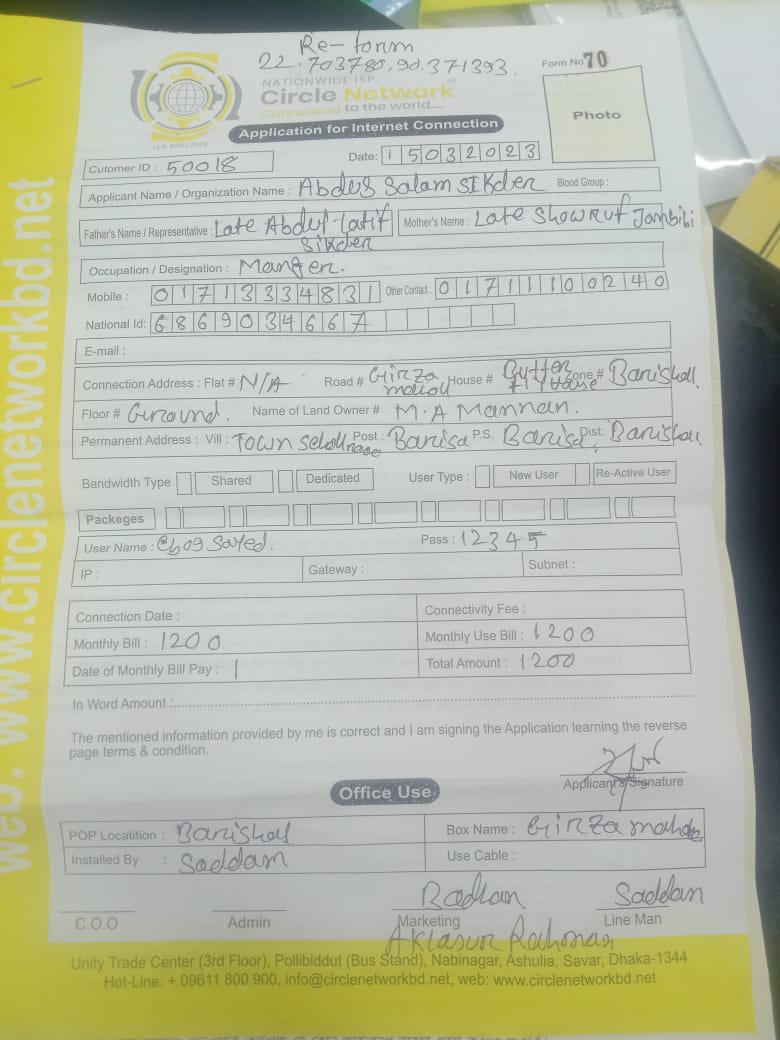 Re-form
22.703780,90.371393.
Form No 70
NATIONWIDE ISP
Circle Network
Connected to the world....
ISO 9001:2015
Photo
Application for Internet Connection
Date: 15032023
Cutomer ID : 50018
Applicant Name / Organization Name : Abdus Salam SIKder Blood Group :
Father's Name / Representative : Late Abdul Latif Sikder Mother's Name : Late Showruf Jambibi
Occupation / Designation :
Mobile : 01713334831 Other Contact : 01711100240
National Id: 6869034667
E-mail :
Connection Address : Flat # N/A Road # Girza mahall House # Zone # Barishal
Floor # Ground. Name of Land Owner # M.A Mannan.
Permanent Address : Vill : Town Post : Barisa P.S. Barisa Dist: Barishal
Bandwidth Type Shared Dedicated User Type : New User Re-Active User
Packeges
User Name : Sayed. Pass : 12345
IP : Gateway : Subnet :
Connection Date : Connectivity Fee :
Monthly Bill : 1200 Monthly Use Bill : 1200
Date of Monthly Bill Pay : 1 Total Amount : 1200
In Word Amount :
The mentioned information provided by me is correct and I am signing the Application learning the reverse
page terms & condition.
Applicant's Signature
Office Use
POP Locatition : Barishal Box Name : Girza
Installed By : Saddam Use Cable :
Badhan Saddam
C.O.O Admin Marketing Line Man
Rahman
Unity Trade Center (3rd Floor), Pollibiddut (Bus Stand), Nabinagar, Ashulia, Savar, Dhaka-1344
Hot-Line: + 09611 800 900, info@circlenetworkbd.net, web: www.circlenetworkbd.net
web: www.circlenetworkbd.net